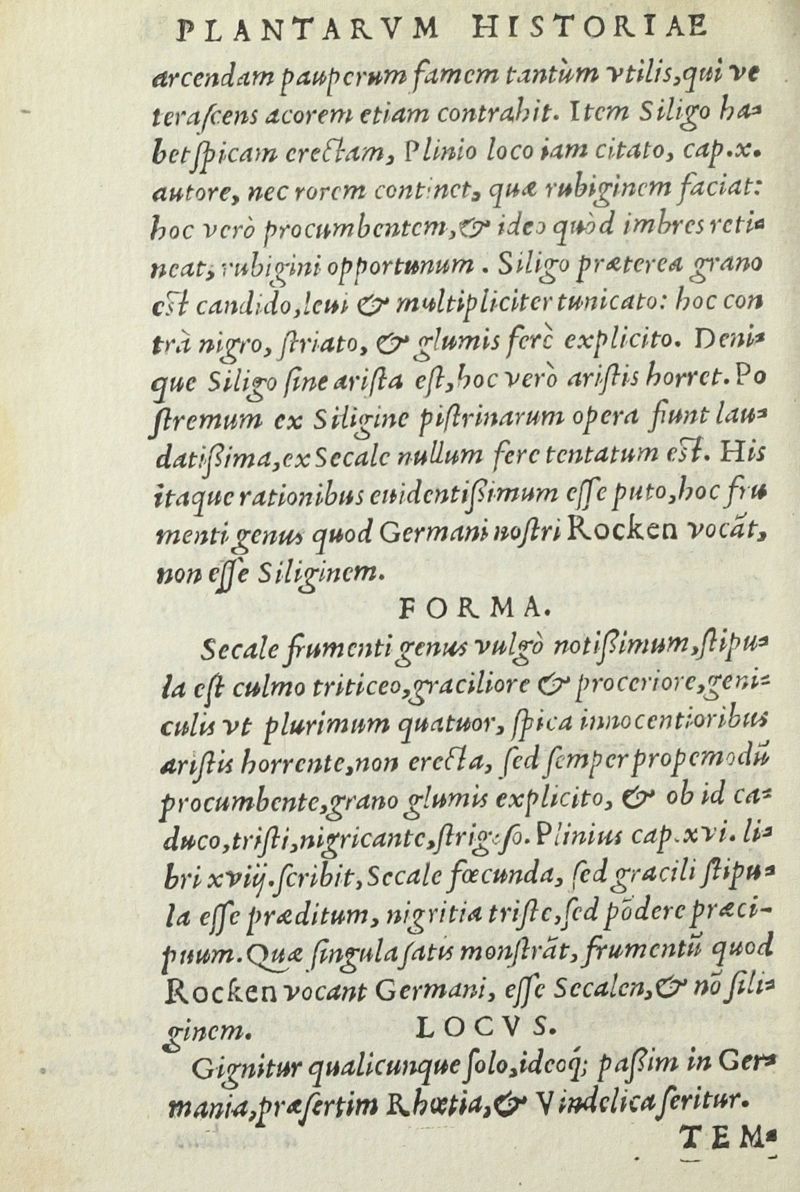 PLANTARVM HISTORIAE
arcendam pauperum famem tantùm vtilis,qui ve
teraſcens acorem etiam contrahit. Item Siligo ha-
betſpicam erectam, Plinio loco iam citato, cap.x.
autore, nec rorem continet, quæ rubiginem faciat:
hoc verò procumbentem,& ideo quòd imbres reti-
neat, rubigini opportunum. Siligo præterea grano
eſt candido,leui & multipliciter tunicato: hoc con
trà nigro, ſtriato, & glumis ferè explicito. Deni-
que Siligo ſine ariſta eſt,hoc verò ariſtis horret. Po
ſtremum ex Siligine piſtrinarum opera fiunt lau-
datißima,ex Secale nullum fere tentatum eſt. His
itaque rationibus euidentißimum eſſe puto,hoc fru
menti genus quod Germani noſtri Rocken vocãt,
non eſſe Siliginem.
FORMA.
Secale frumenti genus vulgò notißimum,ſtipu-
la eſt culmo triticeo,graciliore & proceriore,geni-
culis vt plurimum quatuor, ſpica innocentioribus
ariſtis horrente,non erecta, ſed ſemper propemodũ
procumbente,grano glumis explicito, & ob id ca-
duco,triſti,nigricante,ſtrigoſo. Plinius cap.xvi. li-
bri xviij.ſcribit, Secale fœcunda, ſed gracili ſtipu-
la eſſe præditum, nigritia triſte,ſed põdere præci-
puum. Quæ ſingula ſatis monſtrãt, frumentũ quod
Rocken vocant Germani, eſſe Secalen,& nõ ſili-
ginem. LOCVS.
Gignitur qualicunque ſolo,ideoq; paßim in Ger-
mania,præſertim Rhœtia,& Vindelica ſeritur.
TEM-